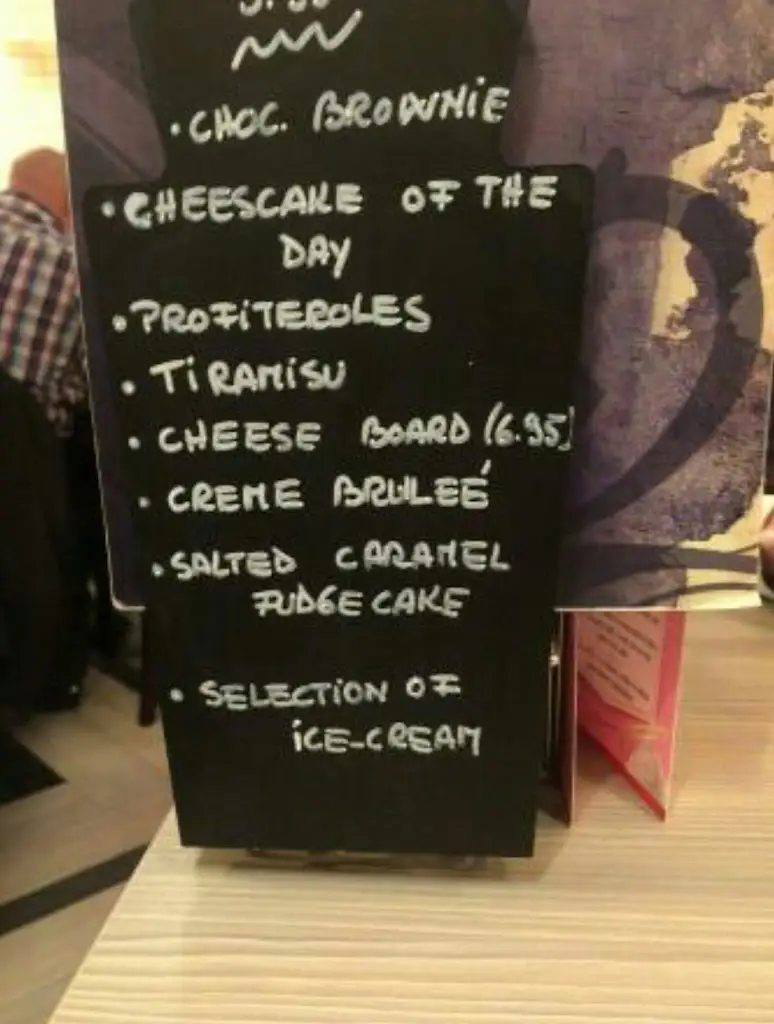 • CHOC. BROWNIE
• CHEESCAKE OF THE
DAY
• PROFITEROLES
• TIRAMISU
• CHEESE BOARD (6.95)
• CREME BRULEÉ
• SALTED CARAMEL
FUDGE CAKE
• SELECTION OF
ICE-CREAM